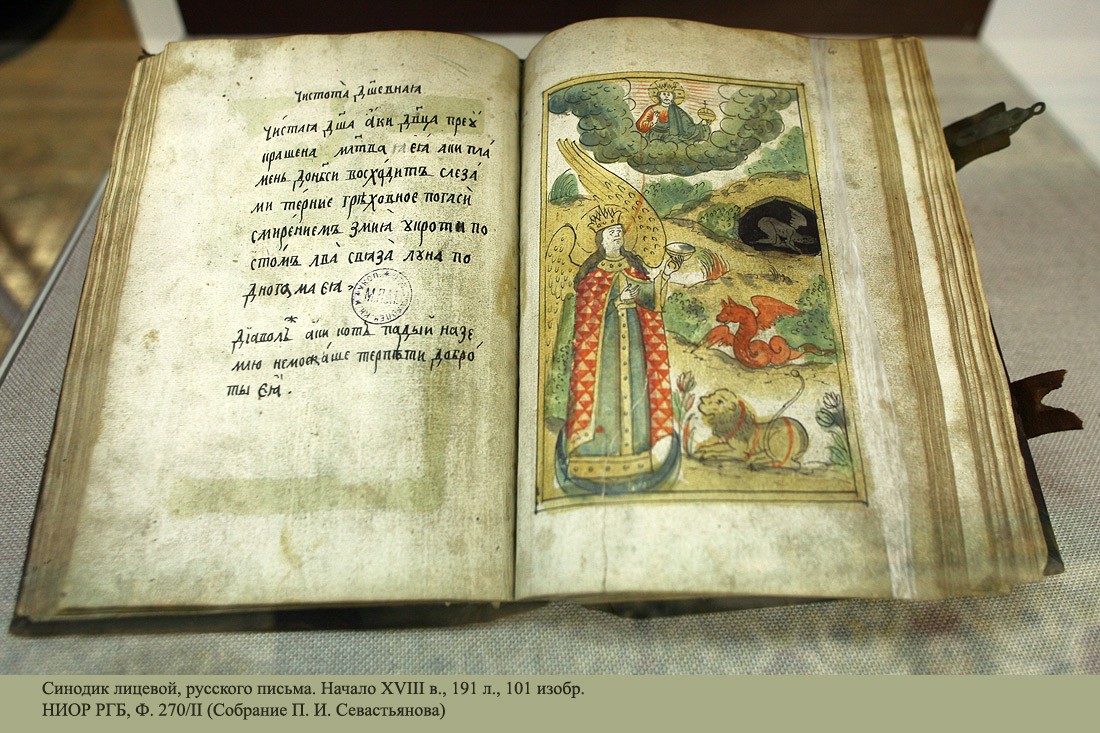 Чистота̀ Дш҃евнаѧ
Чи́стаѧ Дш҃а а́ки Дв҃ица преѹ
крашена мл҃тва еѧ̀ аки пла́
мень до нб҃си восхо́дитъ слеза́
ми те́рние грѣховное погасѝ
смирениемъ змиѧ̀ ѹкроти по
сто́мъ лва̀ свѧза̀ луна по
Дногама еѧ̀.
Дїаволъ аки котъ падый назе
млю неможа́ше терпѣти добро́
ты еѧ̀.
М.П.М.
Синодик лицевой, русского письма. Начало XVIII в., 191 л., 101 изобр.
НИОР РГБ, Ф. 270/II (Собрание П. И. Севастьянова)